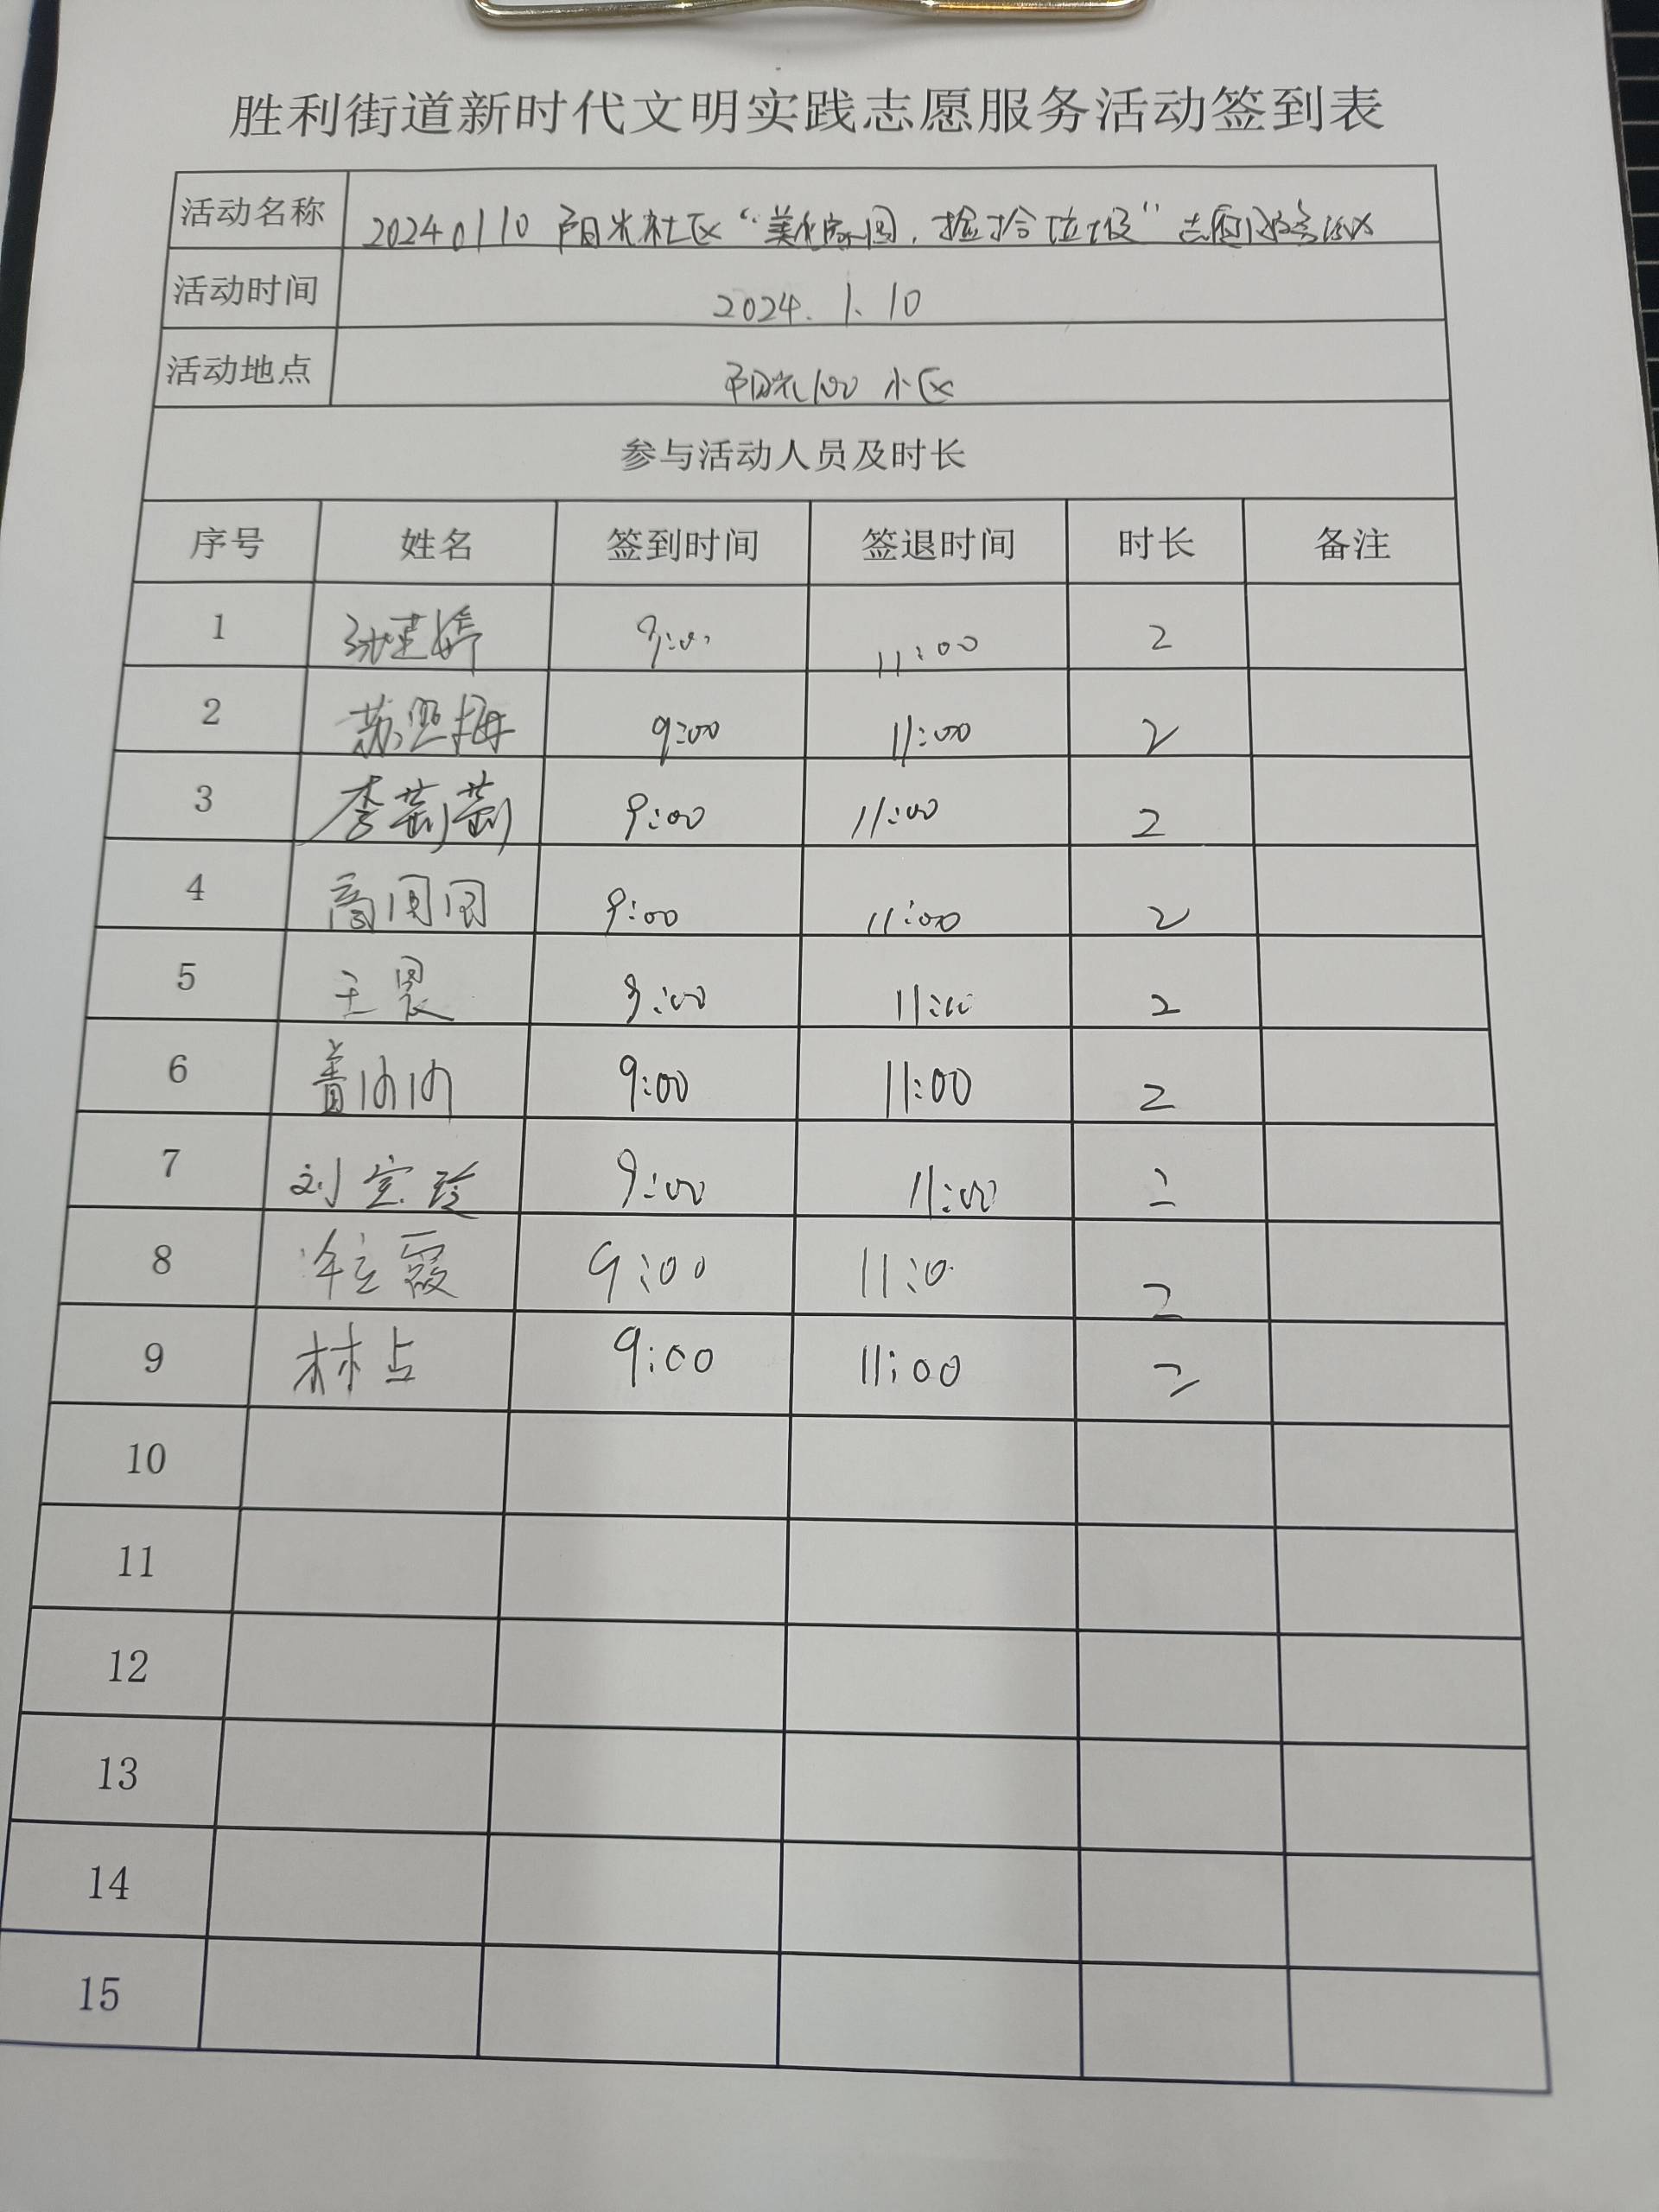 胜利街道新时代文明实践志愿服务活动签到表
活动名称 20240110 阳光社区“美化家园，捡拾垃圾”志愿服务活动
活动时间 2024.1.10
活动地点 阳光100小区
参与活动人员及时长
序号 姓名 签到时间 签退时间 时长 备注
1 9:00 11:00 2
2 9:00 11:00 2
3 李莉莉 9:00 11:00 2
4 9:00 11:00 2
5 王晨 9:00 11:00 2
6 9:00 11:00 2
7 刘宝玲 9:00 11:00 2
8 9:00 11:0 2
9 林占 9:00 11:00 2
10
11
12
13
14
15